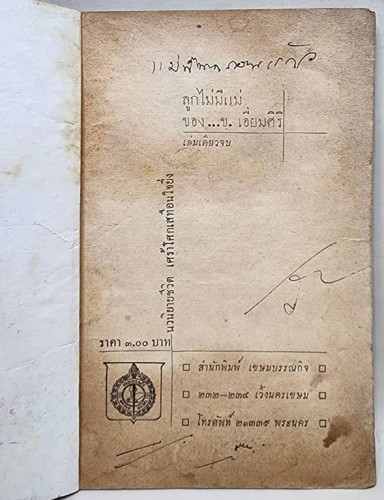 ลูกไม่มีแม่
ของ...ข. เอี่ยมศิริ
เล่มเดียวจบ
นวนิยายชีวิต เศร้าโศกสเทือนใจยิ่ง
ราคา ๓.๐๐ บาท
สำนักพิมพ์ เขษมบรรณกิจ
๒๓๒—๒๓๔ เวิ้งนครเขษม
โทรศัพท์ ๒๑๓๓๕ พระนคร